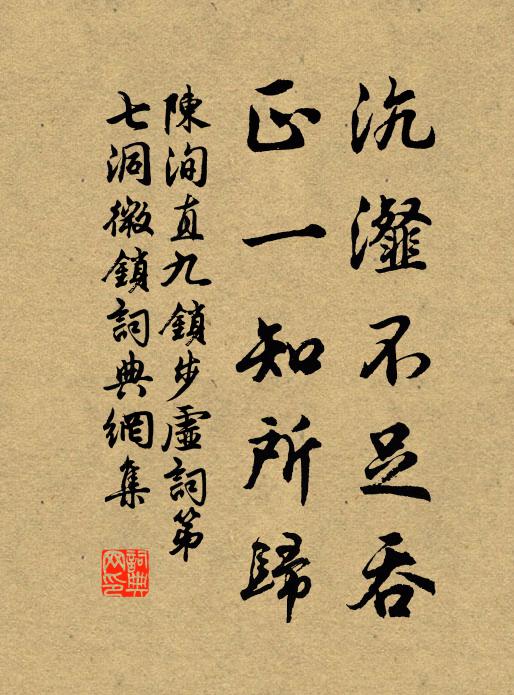 沆瀣不足吞
正一知所歸
陳洵直九鎖步虛詞第
七洞微鎖詞典網集
詞典
网印